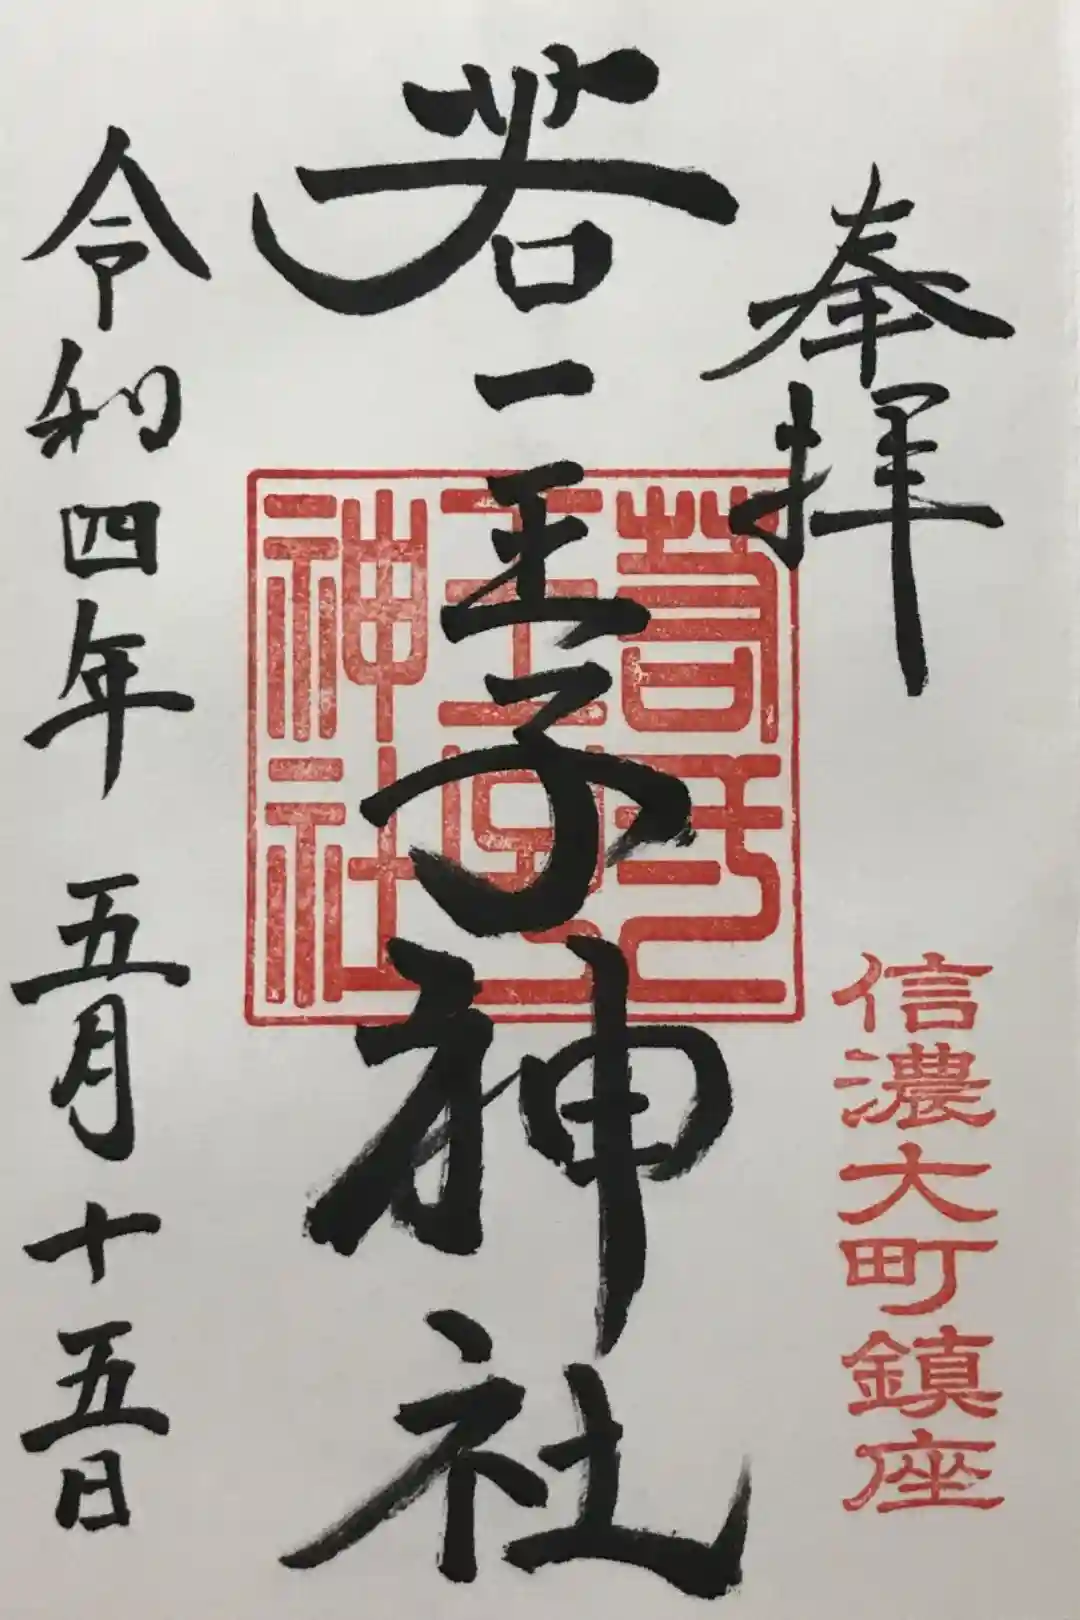 奉拝
信濃大町鎮座
若一王子神社
若一
王子
神社
令和四年 五月十五日